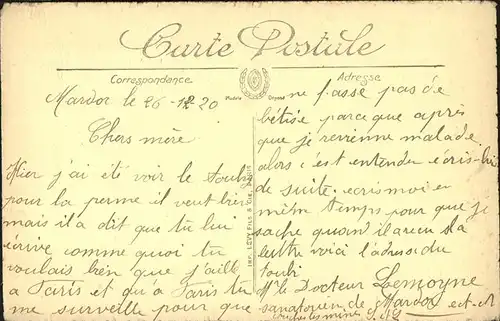 Carte Postale
Correspondance
Adresse
Modèle Déposé
Mardor le 26-12 20
Chers mère
Hier j'ai été voir le toubi
pour la perme il veut bien
mais il a dit que tu lui
écrive comme quoi tu
voulais bien que j'aille
a Paris et qu'a Paris tu
me surveille pour que
Imp. LEVY Fils & Cie, PARIS
ne fasse pas de
bétise parce que après
que je revienne malade
alors c'est entendu écris-lui
de suite. ecris moi en
même temps pour que je
sache quand il aura sa
lettre voici l'adresse du
toubi
Mr le Docteur Lemoyne
sanatorium de Mardor